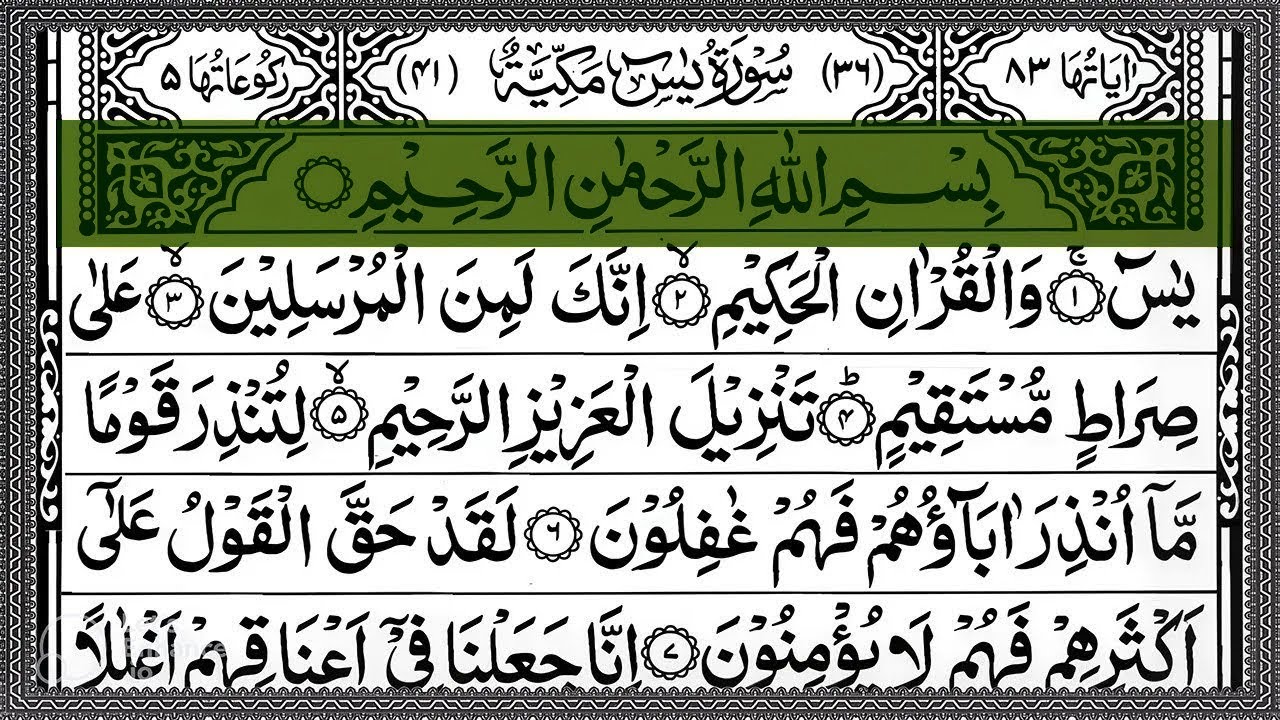 اٰيَاتُهَا ٨٣ (٣٦) سُوْرَةُ يٰسٓ مَكِّيَّةٌ (٤١) رُكُوْعَاتُهَا ٥
بِسْمِ اللّٰهِ الرَّحْمٰنِ الرَّحِيْمِ
يٰسٓ ۚ﴿١﴾ وَالْقُرْاٰنِ الْحَكِيْمِ ۙ﴿٢﴾ اِنَّكَ لَمِنَ الْمُرْسَلِيْنَ ۙ﴿٣﴾ عَلٰى
صِرَاطٍ مُّسْتَقِيْمٍ ؕ﴿۴﴾ تَنْزِيْلَ الْعَزِيْزِ الرَّحِيْمِ ۙ﴿۵﴾ لِتُنْذِرَ قَوْمًا
مَّاۤ اُنْذِرَ اٰبَآؤُهُمْ فَهُمْ غٰفِلُوْنَ ﴿٦﴾ لَقَدْ حَقَّ الْقَوْلُ عَلٰۤى
اَكْثَرِهِمْ فَهُمْ لَا يُؤْمِنُوْنَ ﴿٧﴾ اِنَّا جَعَلْنَا فِيْۤ اَعْنَاقِهِمْ اَغْلٰلًا